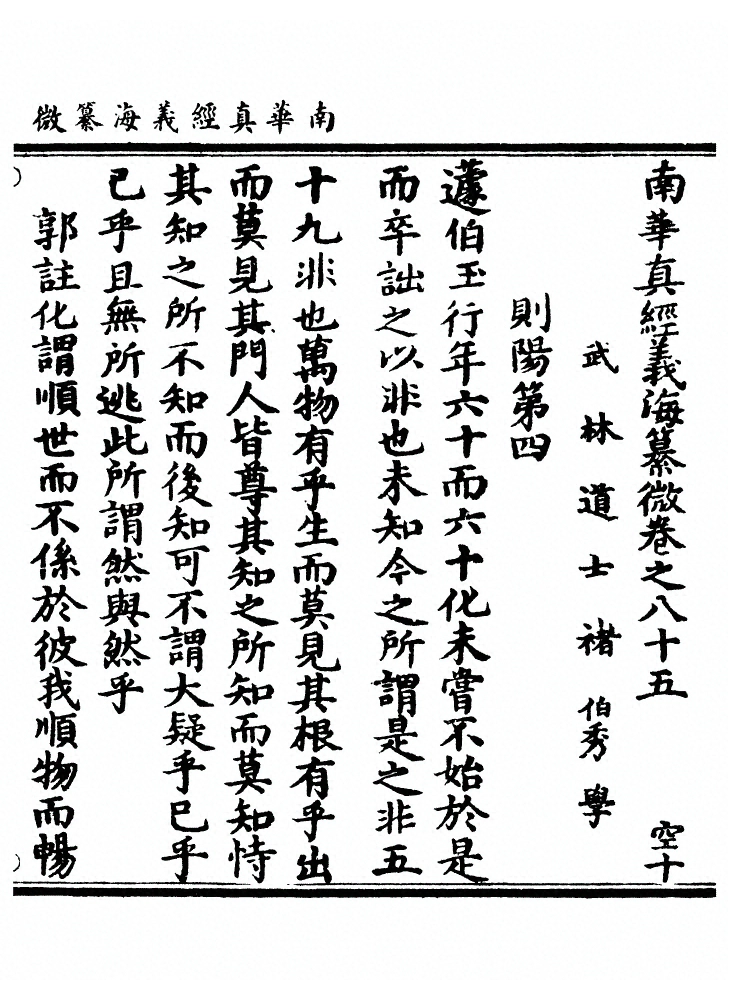 南華真經義海纂微
南華真經義海纂微卷之八十五 空十
武林道士褚伯秀學
則陽第四
蘧伯玉行年六十而六十化未嘗不始於是
而卒詘之以非也未知今之所謂是之非五
十九非也萬物有乎生而莫見其根有乎出
而莫見其門人皆尊其知之所知而莫知恃
其知之所不知而後知可不謂大疑乎已乎
已乎且無所逃此所謂然與然乎
郭註化謂順世而不係於彼我順物而暢